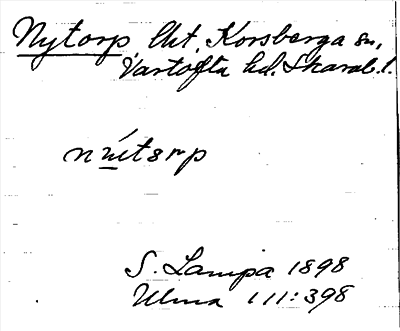 Nytorp, lht, Korsberga sn,
Vartofta hd. Skarab.l.
S. Lampa 1898
Ulma 111:398